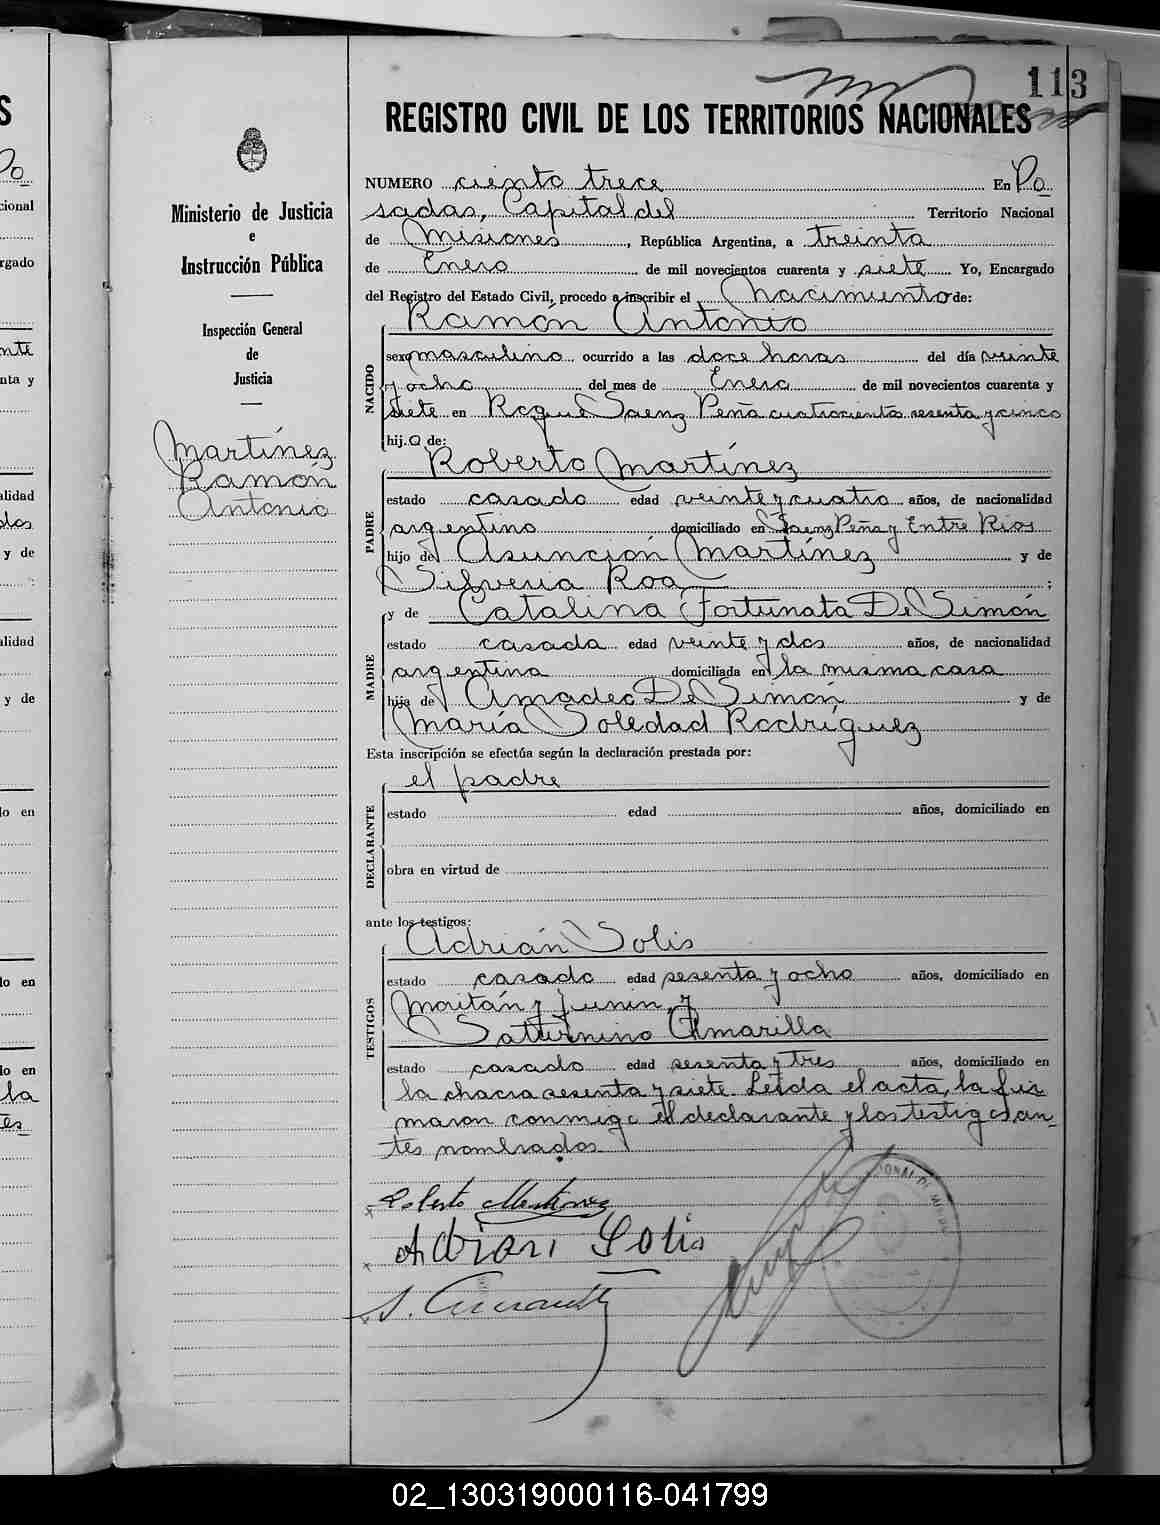 113
REGISTRO CIVIL DE LOS TERRITORIOS NACIONALES
Ministerio de Justicia
e
Instrucción Pública
Inspección General
de
Justicia
Martínez
Ramón
Antonio
NUMERO ciento trece En Po
sadas, Capital del Territorio Nacional
de Misiones, República Argentina, a treinta
de Enero de mil novecientos cuarenta y siete Yo, Encargado
del Registro del Estado Civil, procedo a inscribir el Nacimiento de:
Ramón Antonio
NACIDO
sexo masculino ocurrido a las doce horas del día veinte
y ocho del mes de Enero de mil novecientos cuarenta y
siete en Roque Saenz Peña cuatrocientos sesenta y cinco
hijo de:
Roberto Martínez
PADRE
estado casado edad veinte y cuatro años, de nacionalidad
argentino domiciliado en Saenz Peña y Entre Rios
hijo de Asunción Martínez y de
Silveria Roa;
y de Catalina Fortunata De Simón
MADRE
estado casada edad veinte y dos años, de nacionalidad
argentina domiciliada en la misma casa
hija de Amadeo De Simón y de
María Soledad Rodríguez
Esta inscripción se efectúa según la declaración prestada por:
el padre
DECLARANTE
estado edad años, domiciliado en
obra en virtud de
ante los testigos:
Adrián Solis
TESTIGOS
estado casado edad sesenta y ocho años, domiciliado en
y Junin, y
Saturnino Amarilla
estado casado edad sesenta y tres años, domiciliado en
la chacra sesenta y siete. Leida el acta, la fir
maron conmigo el declarante y los testigos an
tes nombrados.
Roberto Martinez
Adrian Solis
S.
02_130319000116-041799